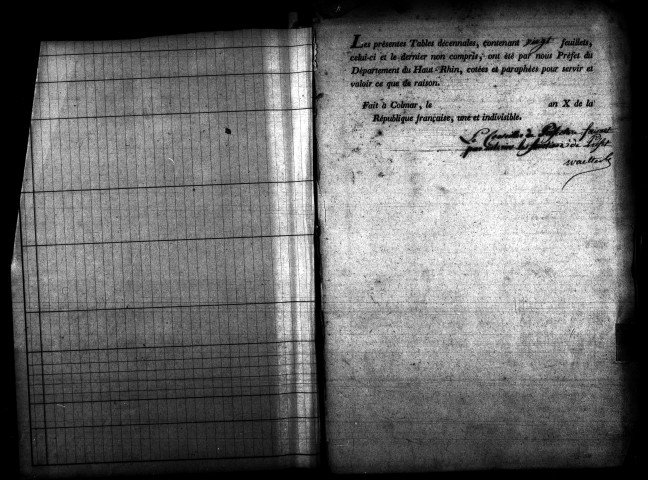 Les présentes Tables décennales, contenant vingt feuillets,
celui-ci et le dernier non compris, ont été par nous Préfet du
Département du Haut-Rhin, cotées et paraphées pour servir et
valoir ce que de raison.
Fait à Colmar, le an X de la
République française, une et indivisible.
Le Conseiller de Préfecture faisant
par interim les fonctions de Préfet